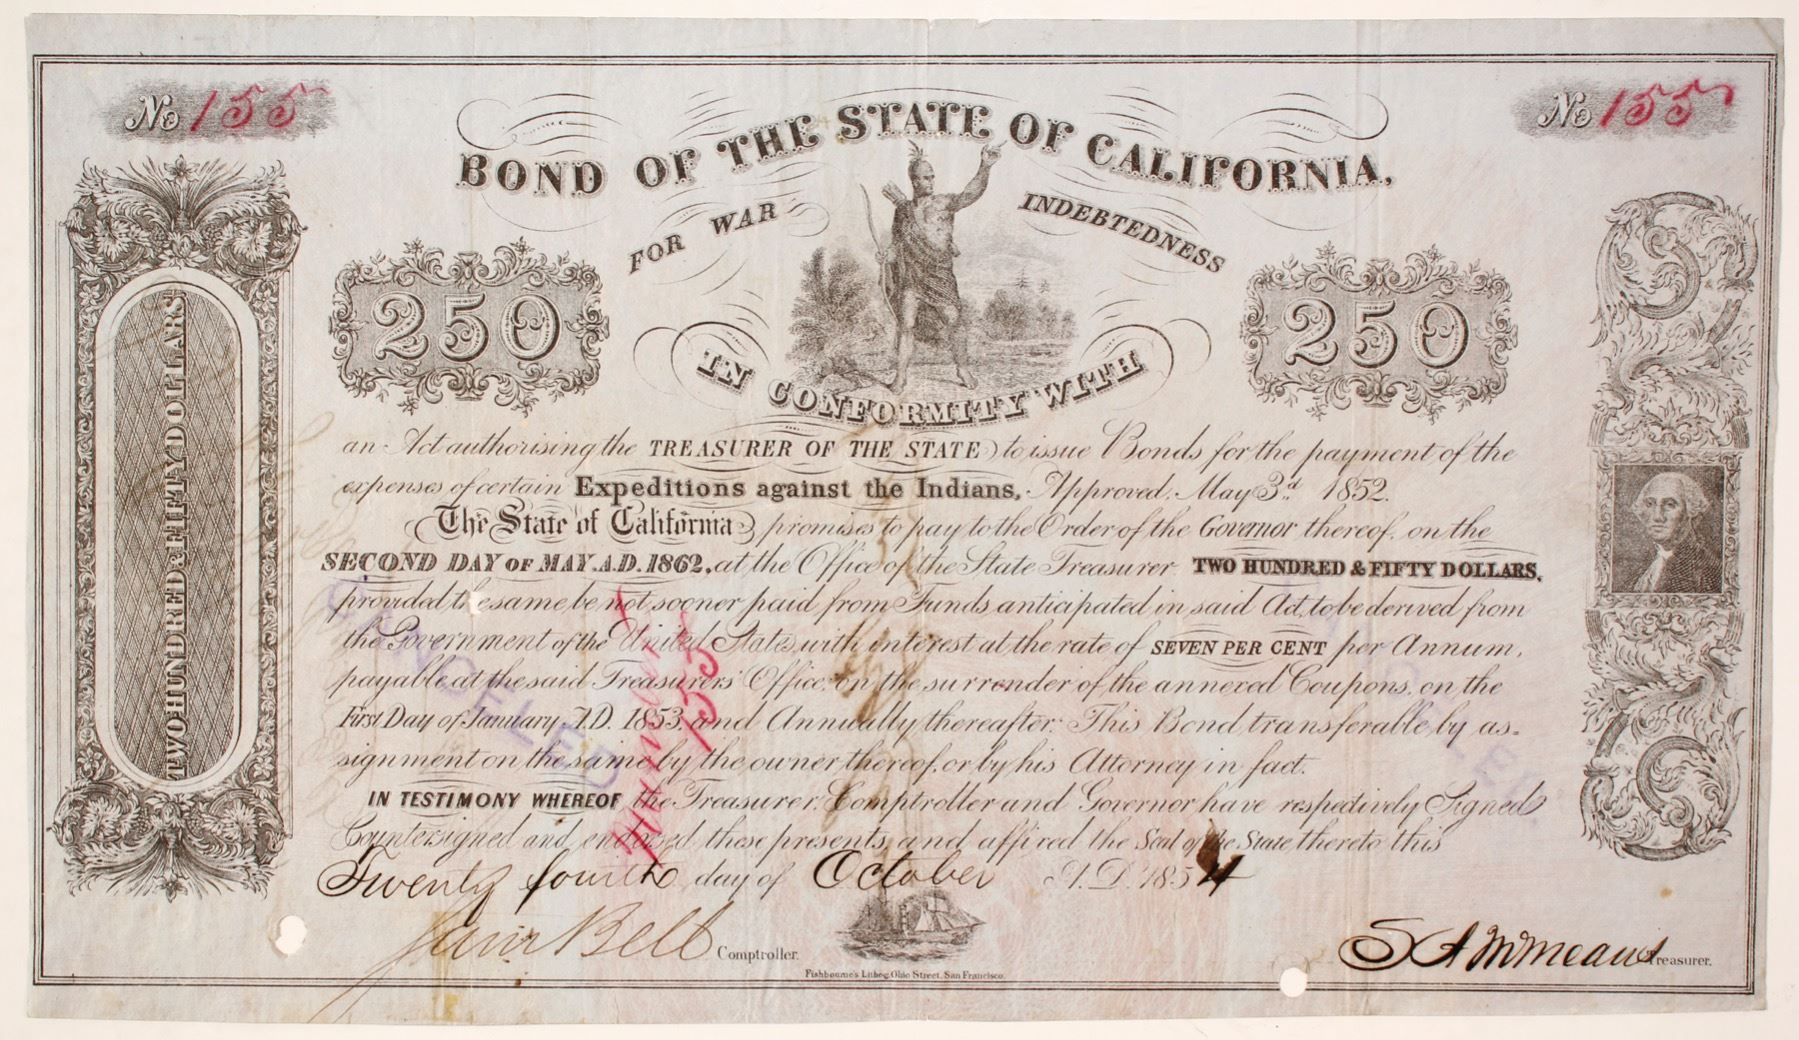 No 155
No 155
BOND OF THE STATE OF CALIFORNIA,
FOR WAR INDEBTEDNESS
250
250
IN CONFORMITY WITH
an Act authorising the TREASURER OF THE STATE to issue Bonds for the payment of the
expenses of certain Expeditions against the Indians, Approved, May 3d 1852.
The State of California promises to pay to the Order of the Governor thereof, on the
SECOND DAY OF MAY A.D. 1862, at the Office of the State Treasurer TWO HUNDRED & FIFTY DOLLARS,
provided the same be not sooner paid from Funds anticipated in said Act, to be derived from
the Government of the United States, with interest at the rate of SEVEN PER CENT per Annum,
payable at the said Treasurers' Office, on the surrender of the annexed Coupons, on the
First Day of January A.D. 1853, and Annually thereafter. This Bond transferable by as=
signment on the same by the owner thereof, or by his Attorney in fact.
IN TESTIMONY WHEREOF the Treasurer, Comptroller and Governor have respectively Signed
Countersigned and endorsed these presents, and affixed the Seal of the State thereto this
Twenty fourth day of October A.D. 1854
Sam Bell Comptroller.
S A McMeans Treasurer.
Fishbourne's Lithog. Ohio Street, San Francisco.
TWO HUNDRED & FIFTY DOLLARS
CANCELLED